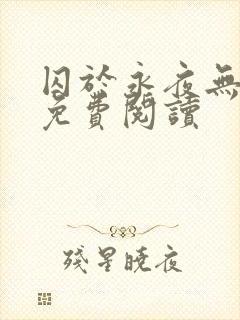 囚於永夜無
免費閱讀
殘星曉夜